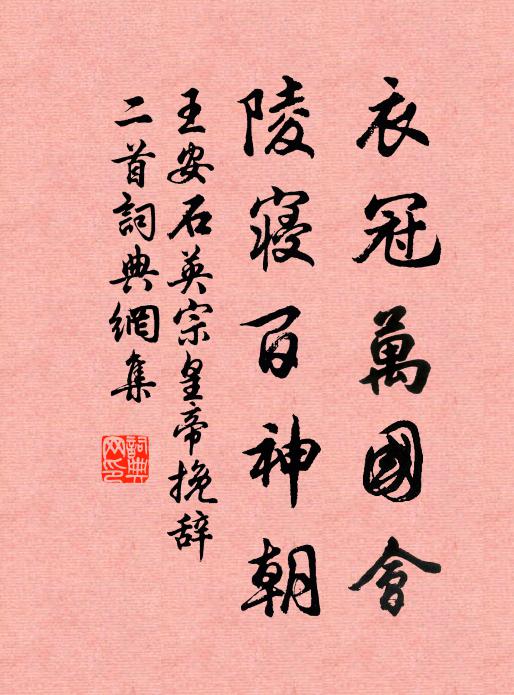 衣冠萬國會
陵寢百神朝
王安石英宗皇帝挽辞
二首詞典網集
詞典网印